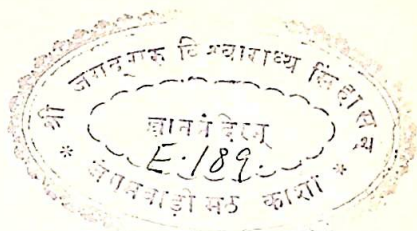 श्री जगद्गुरू विश्वाराध्य सिंहासन
ज्ञानमंदिरम्
E.189.
* जंगमवाड़ी मठ काशी *